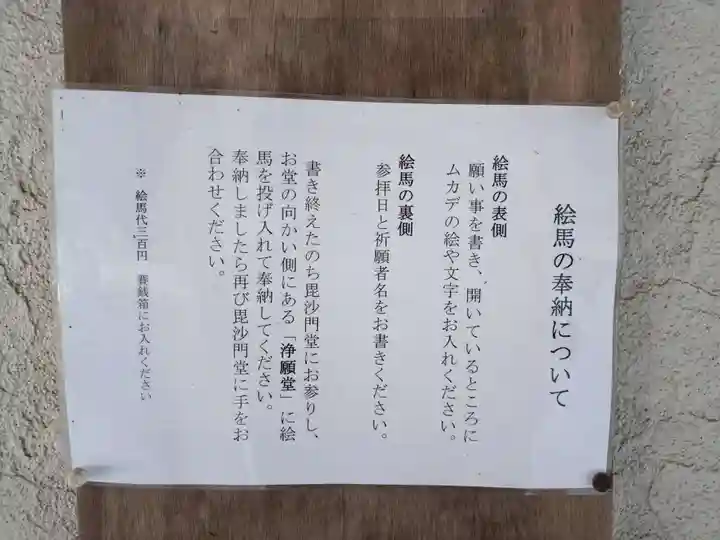 絵馬の奉納について
絵馬の表側
願い事を書き、開いているところに
ムカデの絵や文字をお入れください。
絵馬の裏側
参拝日と祈願者名をお書きください。
書き終えたのち毘沙門堂にお参りし、
お堂の向かい側にある「浄願堂」に絵
馬を投げ入れて奉納してください。
奉納しましたら再び毘沙門堂に手をお
合わせください。
※ 絵馬代三百円 賽銭箱にお入れください